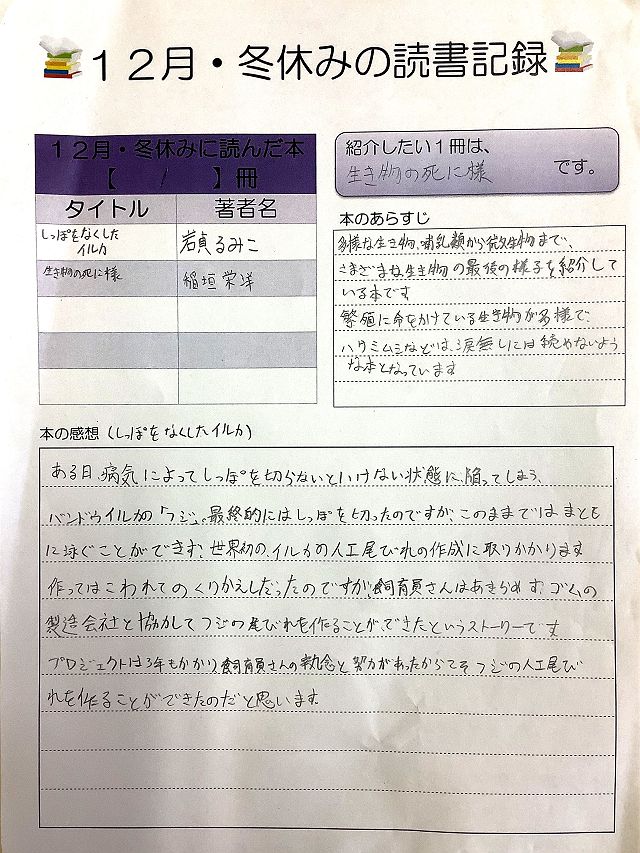 12月・冬休みの読書記録
12月・冬休みに読んだ本
【　/　】冊
タイトル
著者名
しっぽをなくした
イルカ
岩貞るみこ
生き物の死に様
稲垣栄洋
紹介したい1冊は、
生き物の死に様
です。
本のあらすじ
多様な生き物、哺乳類から微生物まで、
さまざまな生き物の最後の様子を紹介して
いる本です
繁殖に命をかけている生き物が多様で
ハサミムシなどは、涙無しには読めないよう
な本となっています
本の感想(しっぽをなくしたイルカ)
ある日、病気によってしっぽを切らないといけない状態に、陥ってしまう、
バンドウイルカの「フジ」。最終的にはしっぽを切ったのですが、このままではまとも
に泳ぐことができず、世界初の、イルカの人工尾びれの作成に取りかかります
作ってはこわれてのくりかえしだったのですが、飼育員さんはあきらめず、ゴムの
製造会社と協力してフジの尾びれを作ることが、できたというストーリーです
プロジェクトは3年もかかり飼育員さんの執念と努力があったからこそフジの人工尾び
れを作ることができたのだと思います。